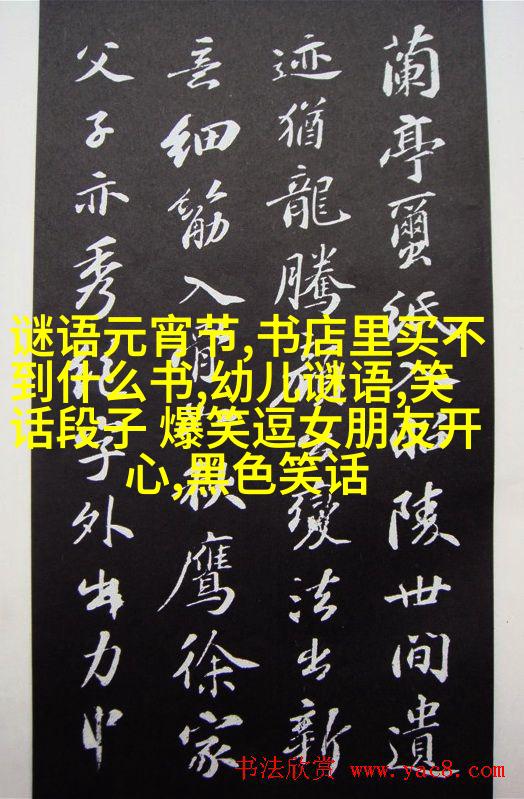 蘭亭蠒紙入昭陵世間遺
迹猶龍騰顏公變法出新
意細筋入骨如秋鷹徐家
父子亦秀絕字外出力中
谜语元宵节,书店里买不
到什么书,幼儿谜语,笑
话段子 爆笑逗女朋友开
心,黑色笑话
书法欣赏 www.yac8.com